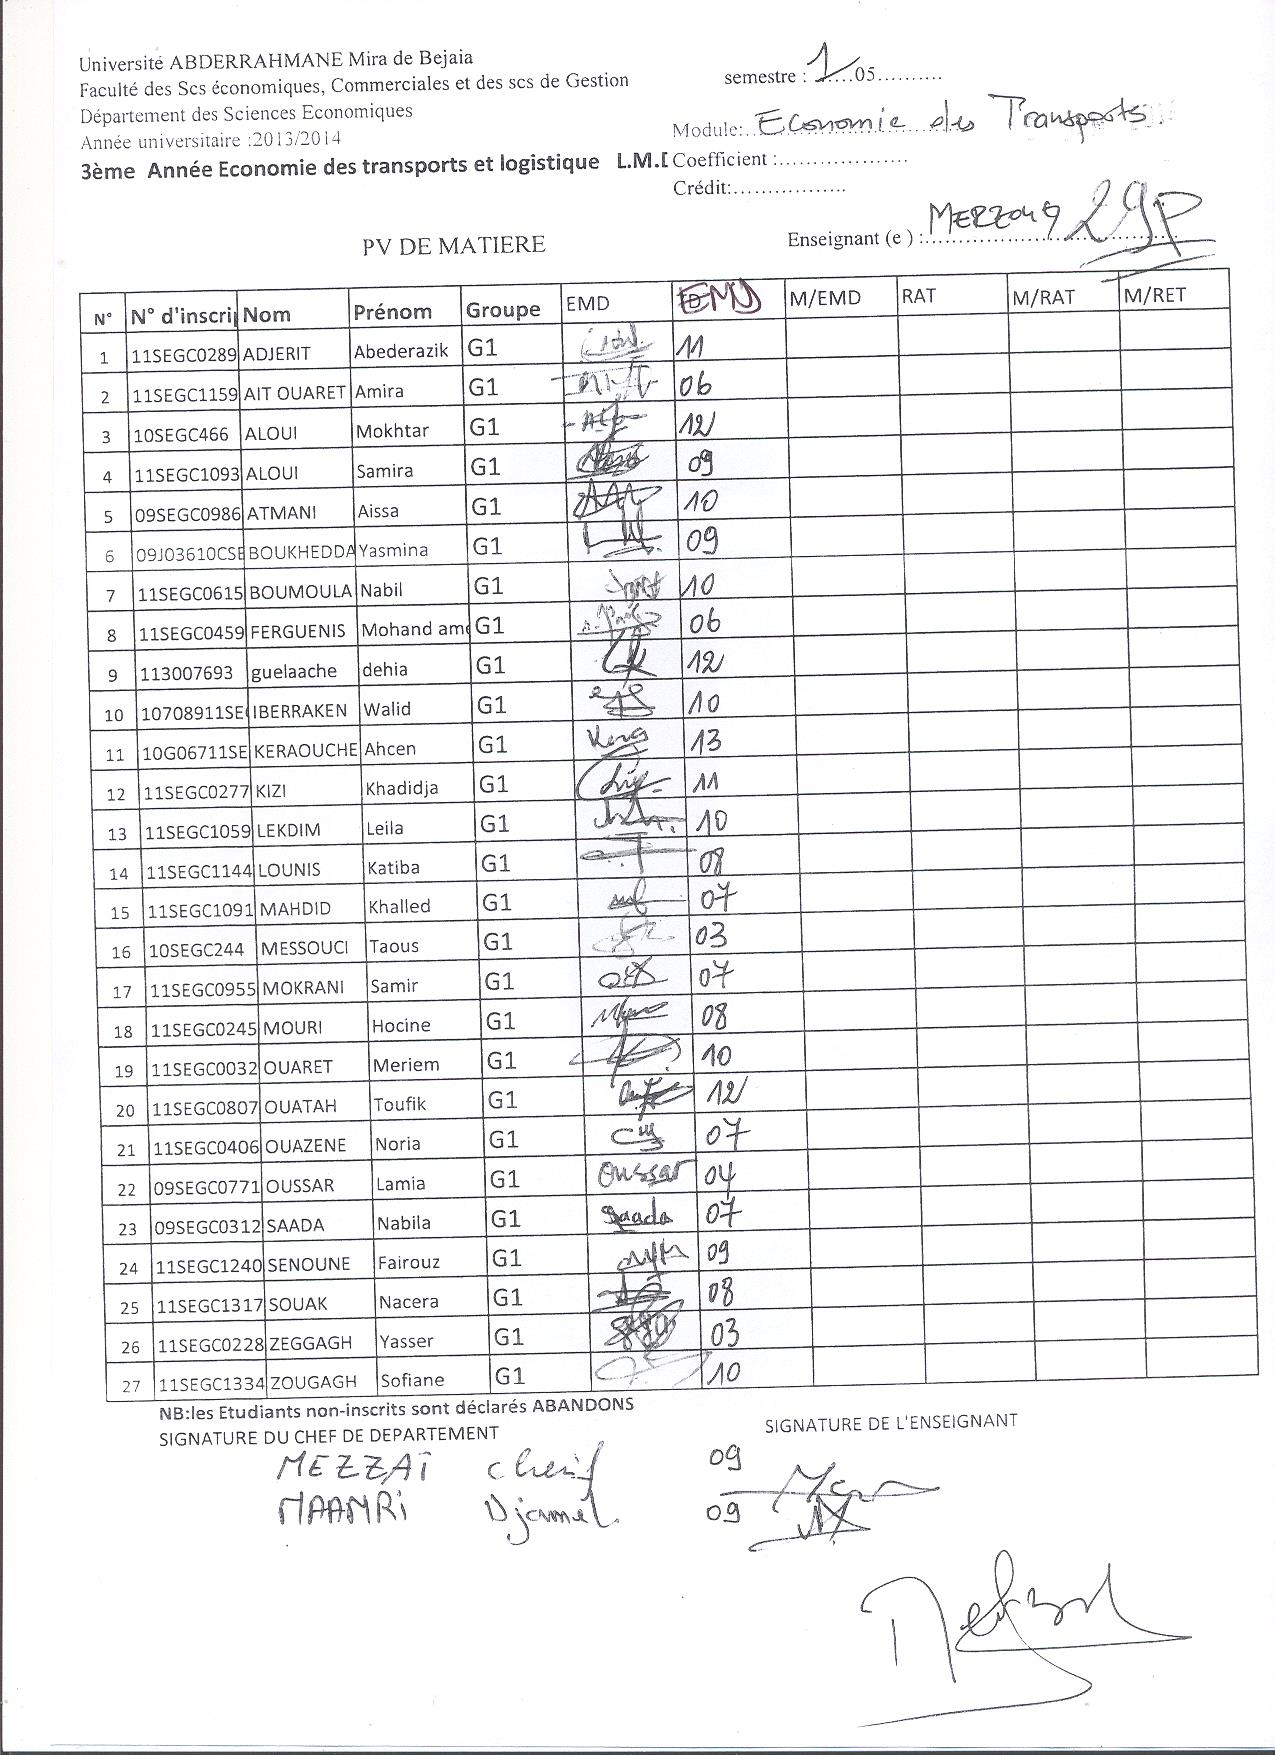 Université ABDERRAHMANE Mira de Bejaia
Faculté des Scs économiques, Commerciales et des scs de Gestion
Département des Sciences Economiques
Année universitaire :2013/2014
3ème Année Economie des transports et logistique L.M.D
semestre : 1....05..........
Module:..Economie des Transports
Coefficient :...................
Crédit:.................
Enseignant (e ) :MERZOUG 29P
PV DE MATIERE
N° N° d'inscri Nom Prénom Groupe EMD EMD M/EMD RAT M/RAT M/RET
1 11SEGC0289 ADJERIT Abederazik G1 11
2 11SEGC1159 AIT OUARET Amira G1 06
3 10SEGC466 ALOUI Mokhtar G1 12
4 11SEGC1093 ALOUI Samira G1 09
5 09SEGC0986 ATMANI Aissa G1 10
6 09J03610CSE BOUKHEDDA Yasmina G1 09
7 11SEGC0615 BOUMOULA Nabil G1 10
8 11SEGC0459 FERGUENIS Mohand am G1 06
9 113007693 guelaache dehia G1 12
10 10708911SE IBERRAKEN Walid G1 10
11 10G06711SE KERAOUCHE Ahcen G1 13
12 11SEGC0277 KIZI Khadidja G1 11
13 11SEGC1059 LEKDIM Leila G1 10
14 11SEGC1144 LOUNIS Katiba G1 08
15 11SEGC1091 MAHDID Khalled G1 07
16 10SEGC244 MESSOUCI Taous G1 03
17 11SEGC0955 MOKRANI Samir G1 07
18 11SEGC0245 MOURI Hocine G1 08
19 11SEGC0032 OUARET Meriem G1 10
20 11SEGC0807 OUATAH Toufik G1 12
21 11SEGC0406 OUAZENE Noria G1 07
22 09SEGC0771 OUSSAR Lamia G1 Oussar 04
23 09SEGC0312 SAADA Nabila G1 Saada 07
24 11SEGC1240 SENOUNE Fairouz G1 09
25 11SEGC1317 SOUAK Nacera G1 08
26 11SEGC0228 ZEGGAGH Yasser G1 03
27 11SEGC1334 ZOUGAGH Sofiane G1 10
NB:les Etudiants non-inscrits sont déclarés ABANDONS
SIGNATURE DU CHEF DE DEPARTEMENT
SIGNATURE DE L'ENSEIGNANT
MEZZAÏ Cherif 09
MAAMRI Djamel. 09